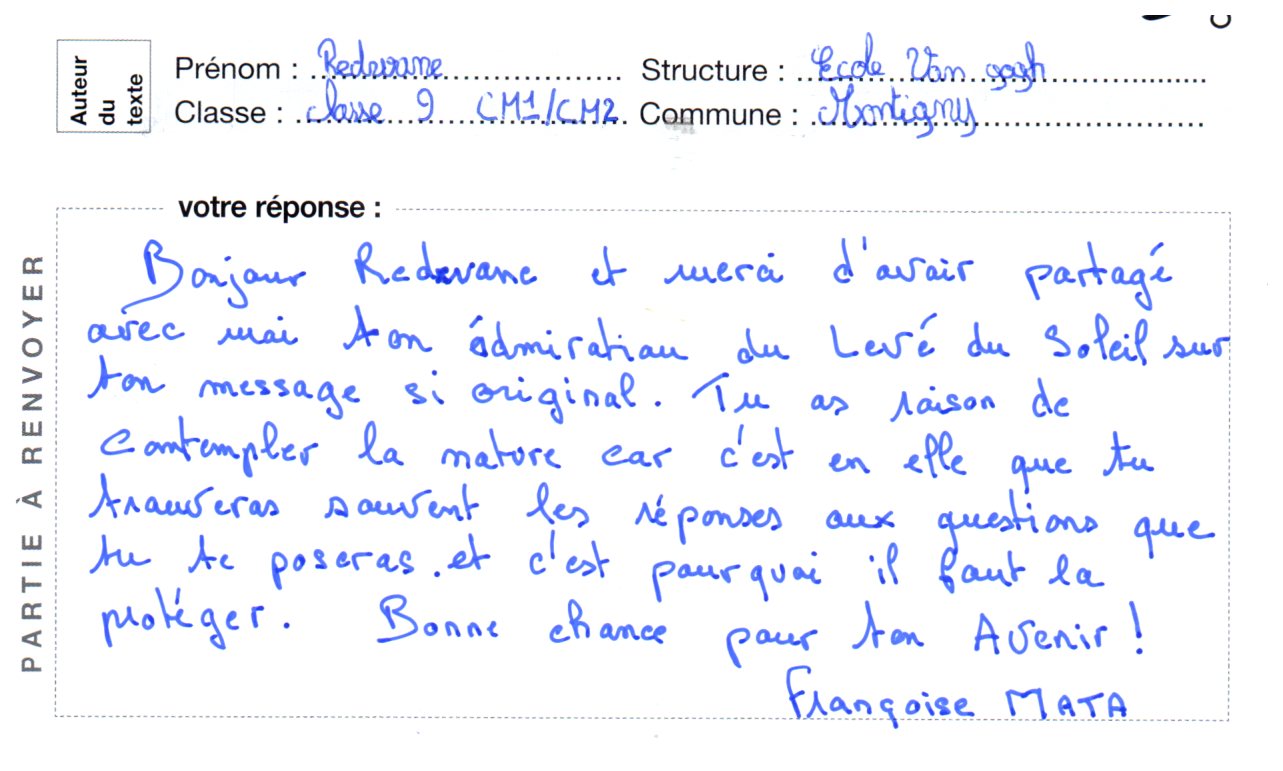 Auteur du texte
Prénom : Redevane Structure : École Van gogh
Classe : classe 9 CM1/CM2 Commune : Montigny
votre réponse :
PARTIE À RENVOYER
Bonjour Redevane et merci d'avoir partagé
avec moi ton admiration du Levé du Soleil sur
ton message si original. Tu as raison de
Contempler la nature car c'est en elle que tu
trouveras souvent les réponses aux questions que
tu te poseras. et c'est pourquoi il faut la
protéger. Bonne chance pour ton Avenir !
Françoise MATA